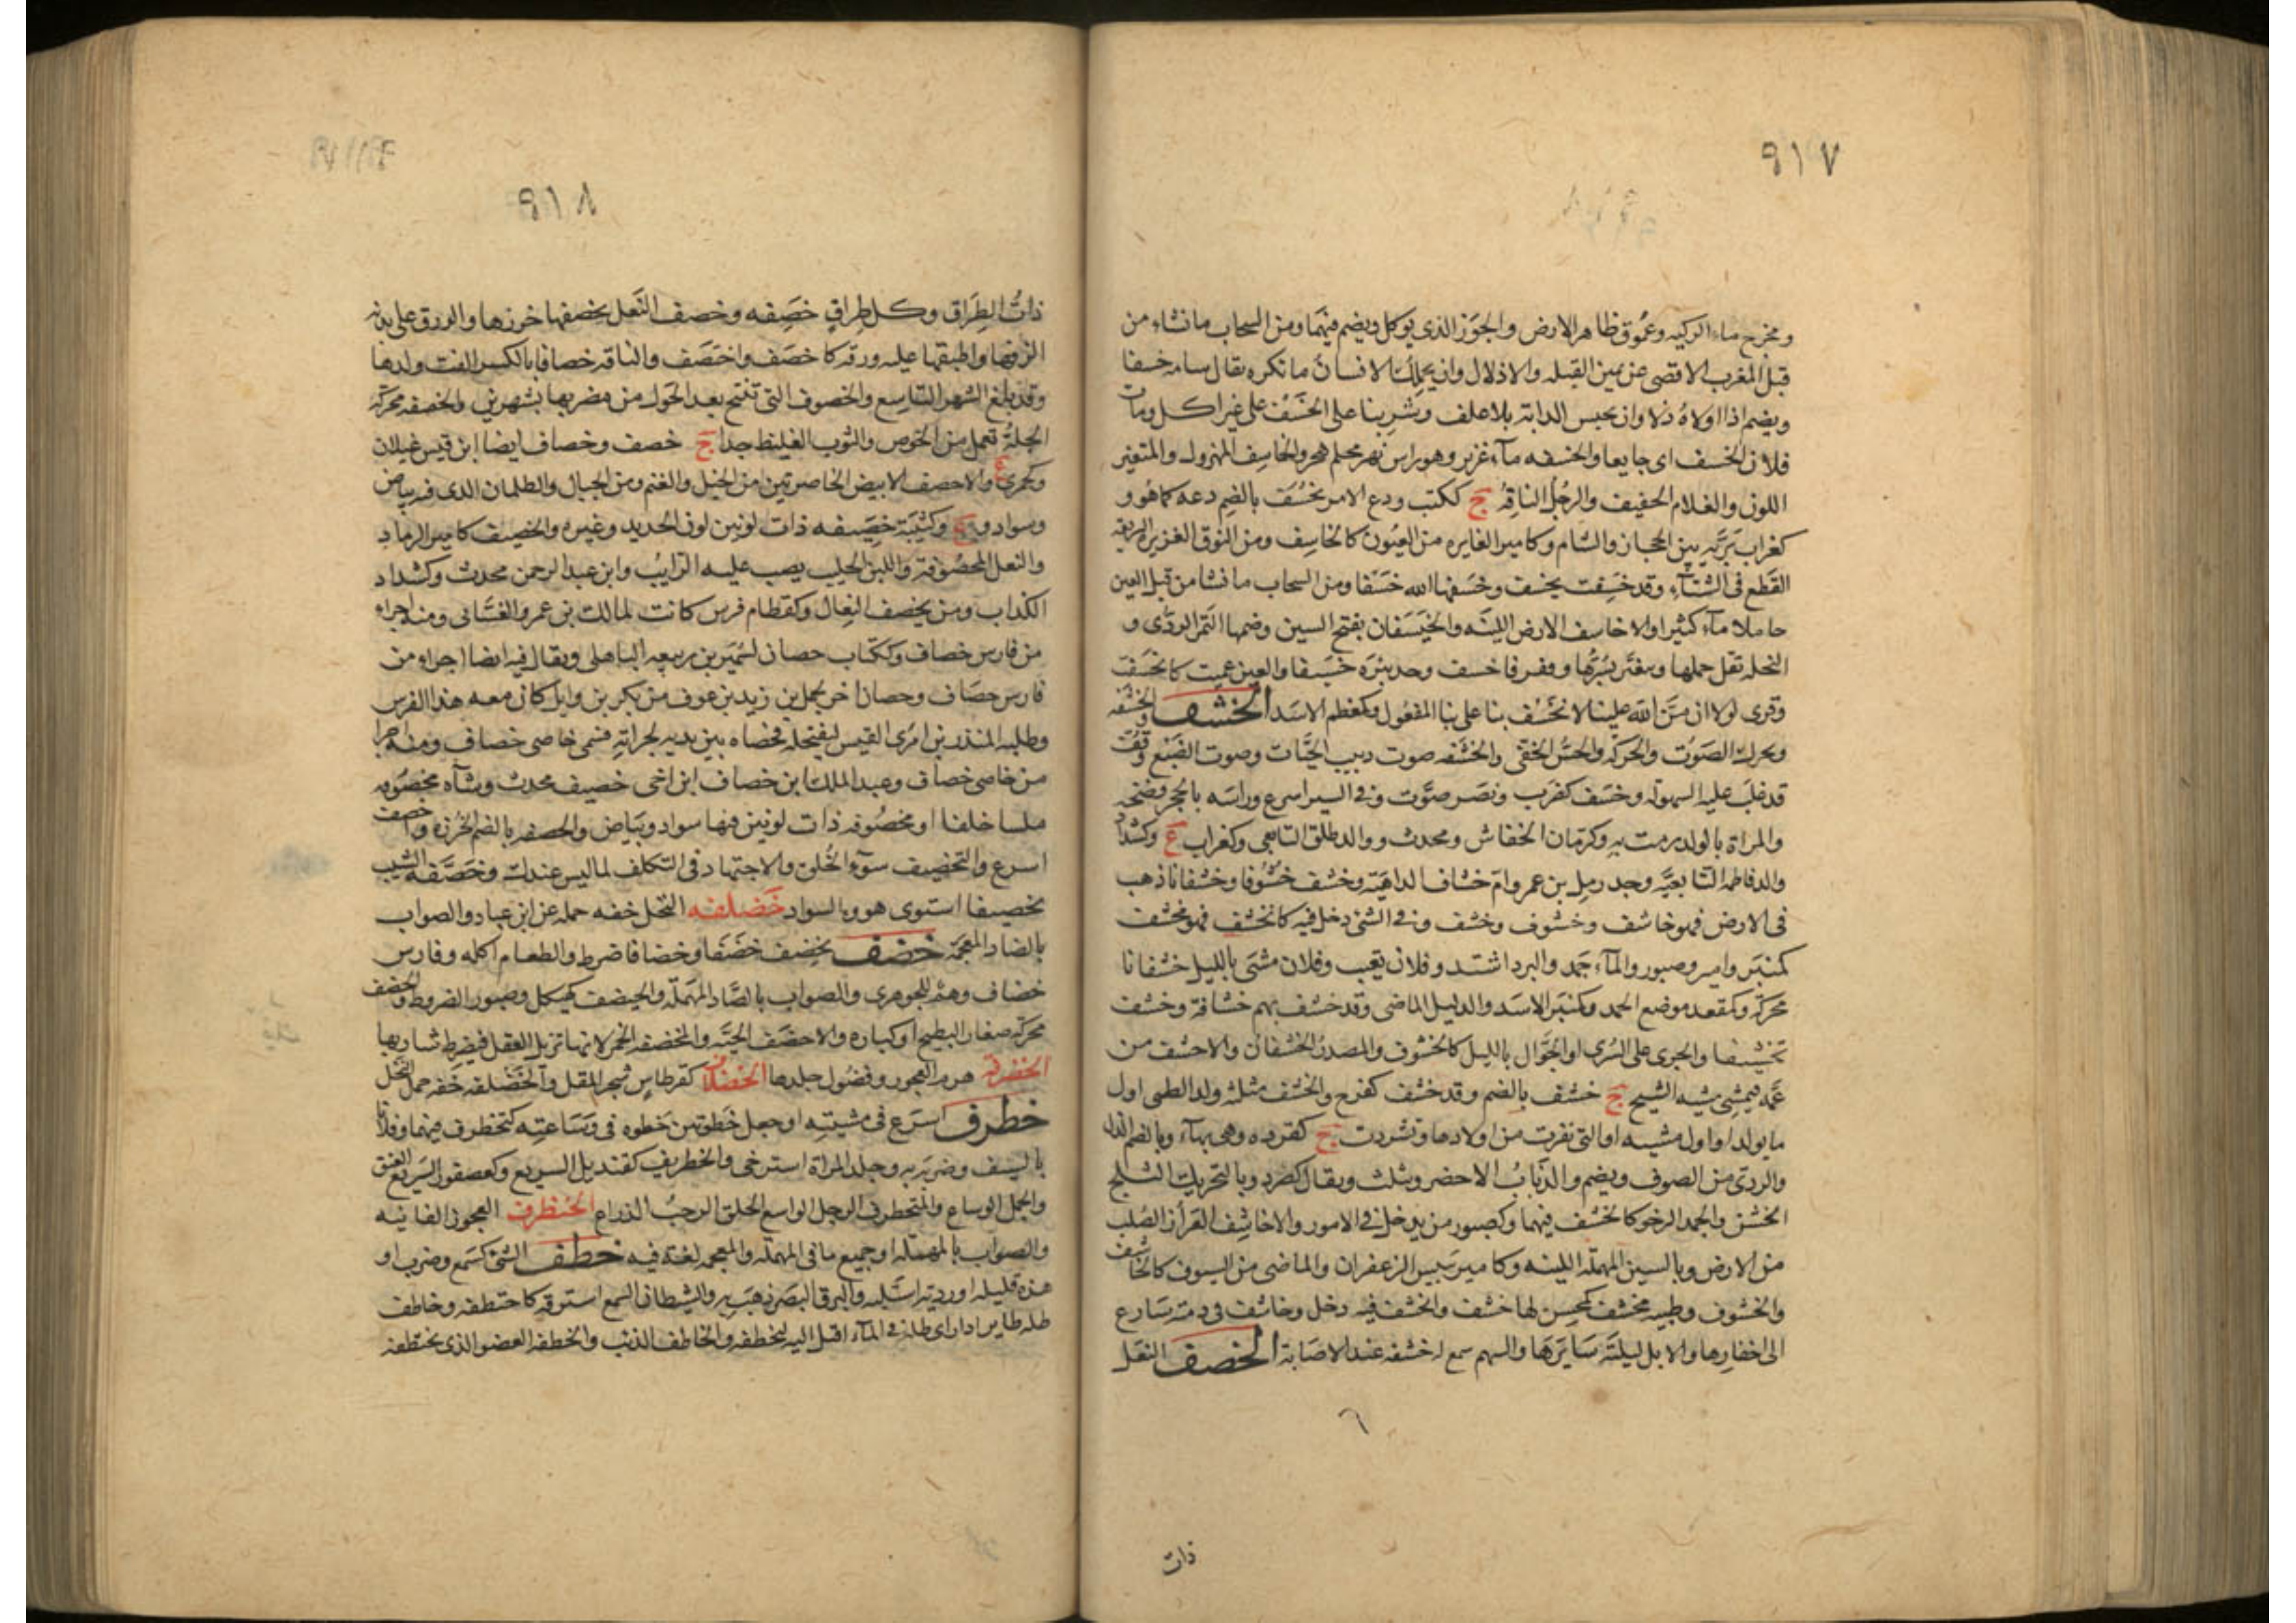 ٩١٧
ومخرج ماء الركيه وعموق ظاهر الارض والجوز الذى يوكل ويضم فيهما ومن السحاب ما نشاء من
قبل المغرب الاقصى عن يمين القبله والاذلال وان يحملك الانسان ما تكره يقال سامه خسفا
ويضم اذا اولاه ذلا وان يحبس الدابة بلا علف وشربنا على الخسف على غير اكل وبات
فلان الخسف اى جايعا والخسفه مآء غزير وهو راس نهر محلم هجر والخاسف المهزول والمتغير
اللون والغلام الخفيف والرجل الناقه ج ككتب ودع الامر يخسف بالضم دعه كما هو و
كغراب برّيه بين الحجاز والشام وكامير الغايره من العيون كالخاسف ومن النوق الغزيره السريعه
القطع فى الشتاء وقد خسفت يخسف وخسفها الله خسفا ومن السحاب ما نشا من قبل العين
حاملا مآء كثيرا والاخاسف الارض اللينه والخيسفان بفتح السين وضمها التمر الردّى و
النخله تقل حملها ويتغير بسرها وحفر فاخسف وجد بئره خسيفا والعين عميت كانخسفت
وقرى لولا ان منّ الله علينا لانخسف بنا على بنا المفعول وكمعظم الاسد الخشف والخشفه
ويحرك الصوت والحركه والحس الخفى والخشفه صوت دبيب الحيّات وصوت الضبع وقف
قد غلب عليه السهولة وخشف كضرب ونصر صوّت وفى السير اسرع وراسه بالحجر فضخه
والمراة بالولد رمت به وكرمان الخفاش ومحدث ووالد طلق التابعى وكغراب ع وكشداد
والد فاطمه التابعيّه وجد زمل بن عمرو وامّ خشاف الداهيه وخشف خشوفا وخشفانا ذهب
فى الارض فهو خاشف وخشوف وخشف وفى الشى دخل فيه كانخشف فهو مخشف
كمنبر وامير وصبور والمآء جمد والبرد اشتد وفلان تغيب وفلان مشى بالليل خشفانا
محركة وكمقعد موضع الجمد وكمنبر الاسد والدليل الماضى وقد خشف بهم خشافة وخشف
تخشيفا والجرى على السرى او الجوّال بالليل كالخشوف والمصدر الخشفان والاخشف من
عمّه فيمشى مشيه الشيح ج خشف بالضم وقد خشف كفرح والخشف مثلثه ولد الظبى اول
ما يولد او اول مشيه او التى نفرت من اولادها وتشردت ج كقرده وهى بهآء وبالضم الذل
والردى من الصوف ويضم والذباب الاخضر ويثلث ويقال كصرد وبالتحريك الثلج
الخشن والجمد الرخو كالخشف فيهما وكصبور من يدخل فى الامور والاخاشف العزاز الصلب
من الارض وبالسين المهملة اللينه وكامير يبيس الزعفران والماضى من السيوف كالخاشف
والخشوف وظبيه مخشف كمحسن لها خشف وانخشف فيه دخل وخاشف فى ذمته سارع
الى اخفارها والابل ليلته سايرها والسهم سمع له خشفه عند الاصابة الخصف النعل
ذات
٩١٨
ذات الطراق وكل طراق خصفه وخصف النعل يخصفها خرزها والورق على بدنه
الزقها واطبقها عليه ورقه كاخصف واختصف والناقه خصافا بالكسر القت ولدها
وقد بلغ الشهر التاسع والخصوف التى تنتج بعد الحول من مضربها بشهرين والخصفه محركة
الجلة تعمل من الخوص والثوب الغليظ جدا ج خصف وخصاف ايضا ابن قيس عيلان
وكجمزى ع والاخصف الابيض الخاصرتين من الخيل والغنم ومن الجبال والظلمان الذى فيه بياض
وسواد و ع وكتيبة خصيفه ذات لونين لون الحديد وغيره والخصيف كامير الرماد
والنعل المخصوفة واللبن الحليب يصب عليه الرايب وابن عبد الرحمن محدث وكشداد
الكذاب ومن يخصف النعال وكقطام فرس كانت لمالك بن عمرو الغسّانى ومنه اجراء
من فارس خصاف وككتاب حصان لسمير بن ربيعه الباهلى ويقال فيه ايضا اجراء من
فارس خصاف وحصان اخر لحمل بن زيد بن عوف من بكر بن وايل كان معه هذا الفرس
وطلبه المنذر بن امرى القيس ليفتحله فخصاه بين يديه لجراته فسمى خاصى خصاف ومنه اجرا
من خاصى خصاف وعبد الملك ابن خصاف ابن اخى خصيف محدث وشآه مخصوفه
ملسا خلفا او مخصوفه ذات لونين فيها سواد وبياض والخصفه بالضم الخرزه واخصف
اسرع والتخصيف سوء الخلق والاجتهاد فى التكلف لما ليس عندك وخصّفه الشيب
تخصيفا استوى هو والسواد خضلفه النخل خفه حمله عن ابن عباد والصواب
بالضاد المعجمة خضف يخضف خضفا وخضافا ضرط والطعام اكله وفارس
خضاف وهم للجوهرى والصواب بالصاد المهملة والخيضف كهيكل وصبور الضروط والخضف
محركة صغار البطيخ او كباره والاخضف الحيّه والمخضفه الخمر لانها تزيل العقل فيضرط شاربها
الخضرفه هرم العجوز وفضول جلدها الخضلاف كقرطاس شجر المقل والخضلفه خفه حمل النخل
خطرف اسرع فى مشيته او جعل خطوتين خطوه فى وساعته كتخطرف فيهما وفلانا
بالسيف وضربه به وجلد المراة استرخى والخطريف كقنديل السريع وكعصفور السريع العنق
والجمل الوساع والمتخطرف الرجل الواسع الخلق الرحب الذراع الخنظرف العجوز الفانيه
والصواب بالمهملة او جميع ما فى المهملة والمعجمه لغة فيه خطف الشى كسمع وضرب او
هذه قليله او رديئه استلبه والبرق البصر ذهب به والشيطان السمع استرقه كاختطفه وخاطف
ظله طاير اذا راى ظله فى المآء اقبل اليه ليخطفه والخاطف الذئب والخطفه العضو الذى يختطفه